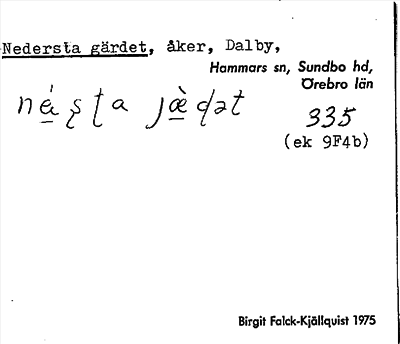 Nedersta gärdet, åker, Dalby,
Hammars sn, Sundbo hd,
Örebro län
335
(ek 9F4b)
Birgit Falck-Kjällquist 1975